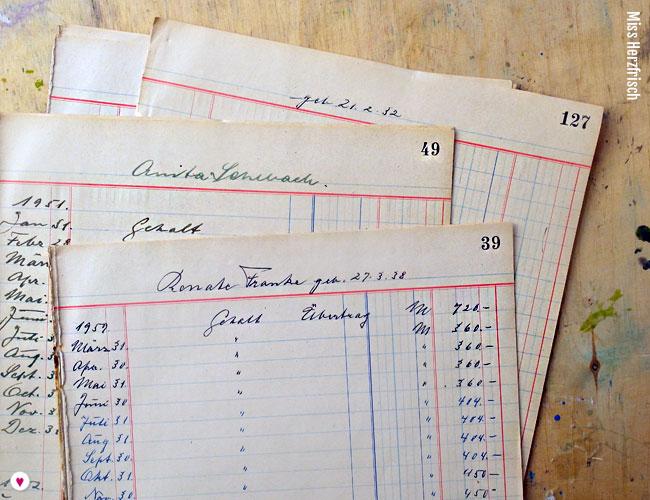 Miss Herzfrisch
127
geb 21.2.32
49
Anita
1951.
Jan 31. Gehalt
Febr 28
März
Apr.
Mai.
Juni.
Juli 3
Aug. 3
Sept. 3
Oct. 3
Nov. 3
Dez. 3
39
Renate Franke geb. 27.3.38
1959. Gehalt Übertrag M 720.-
März 31. " M 360.-
Apr. 30. " " 360.-
Mai 31. " " 360.-
Juni 30 " " 360.-
Juli 31 " " 404.-
Aug 31. " " 404.-
Sept. 30. " " 404.-
Okt. 31. " " 404.-
Nov. 30. " " 450.-
450.-